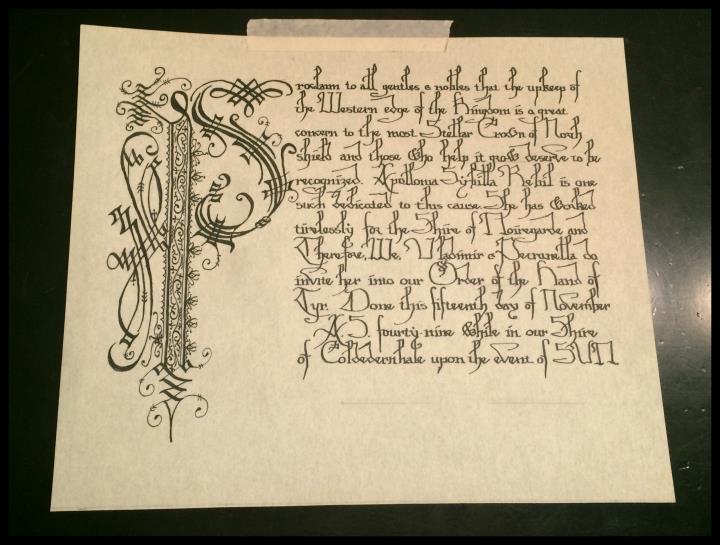 Proclaim to all gentles & nobles that the upkeep of
the Western edge of the Kingdom is a great
concern to the most Stellar Crown of North
shield and those who help it grow deserve to be
recognized. Apollonia Sybilla Rehil is one
such dedicated to this cause. She has worked
tirelessly for the Shire of Noiregarde and
Therefore, We, Vladimir & Petranella do
invite her into our Order of the Hand of
Tyr. Done this fifteenth day of November
A.S. fourty-nine while in our Shire
of Coldedernhale upon the event of SUN